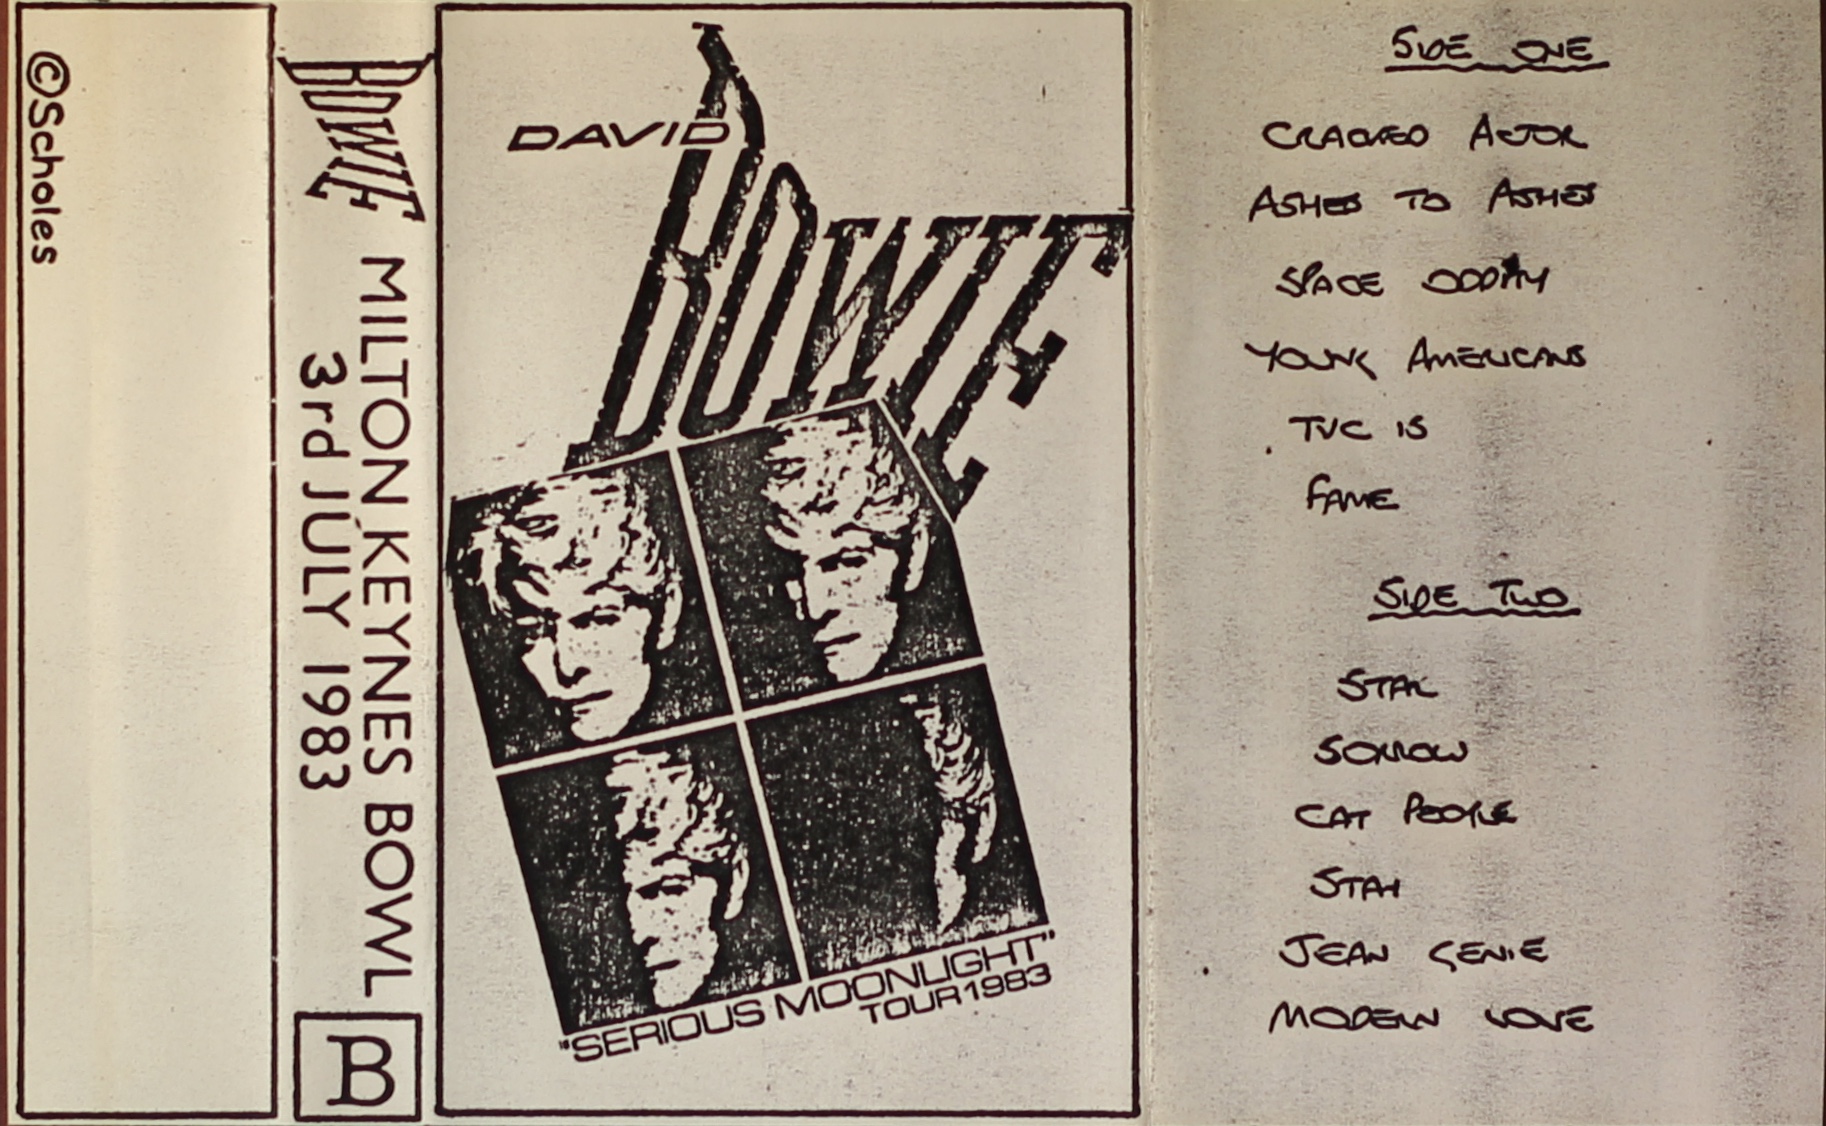 ©Scholes
BOWIE MILTON KEYNES BOWL
3rd JULY 1983
B
DAVID
BOWIE
"SERIOUS MOONLIGHT"
TOUR 1983
SIDE ONE
CRACKED ACTOR
ASHES TO ASHES
SPACE ODDITY
YOUNG AMERICANS
TVC 15
FAME
SIDE TWO
STAR
SORROW
CAT PEOPLE
STAY
JEAN GENIE
MODERN LOVE